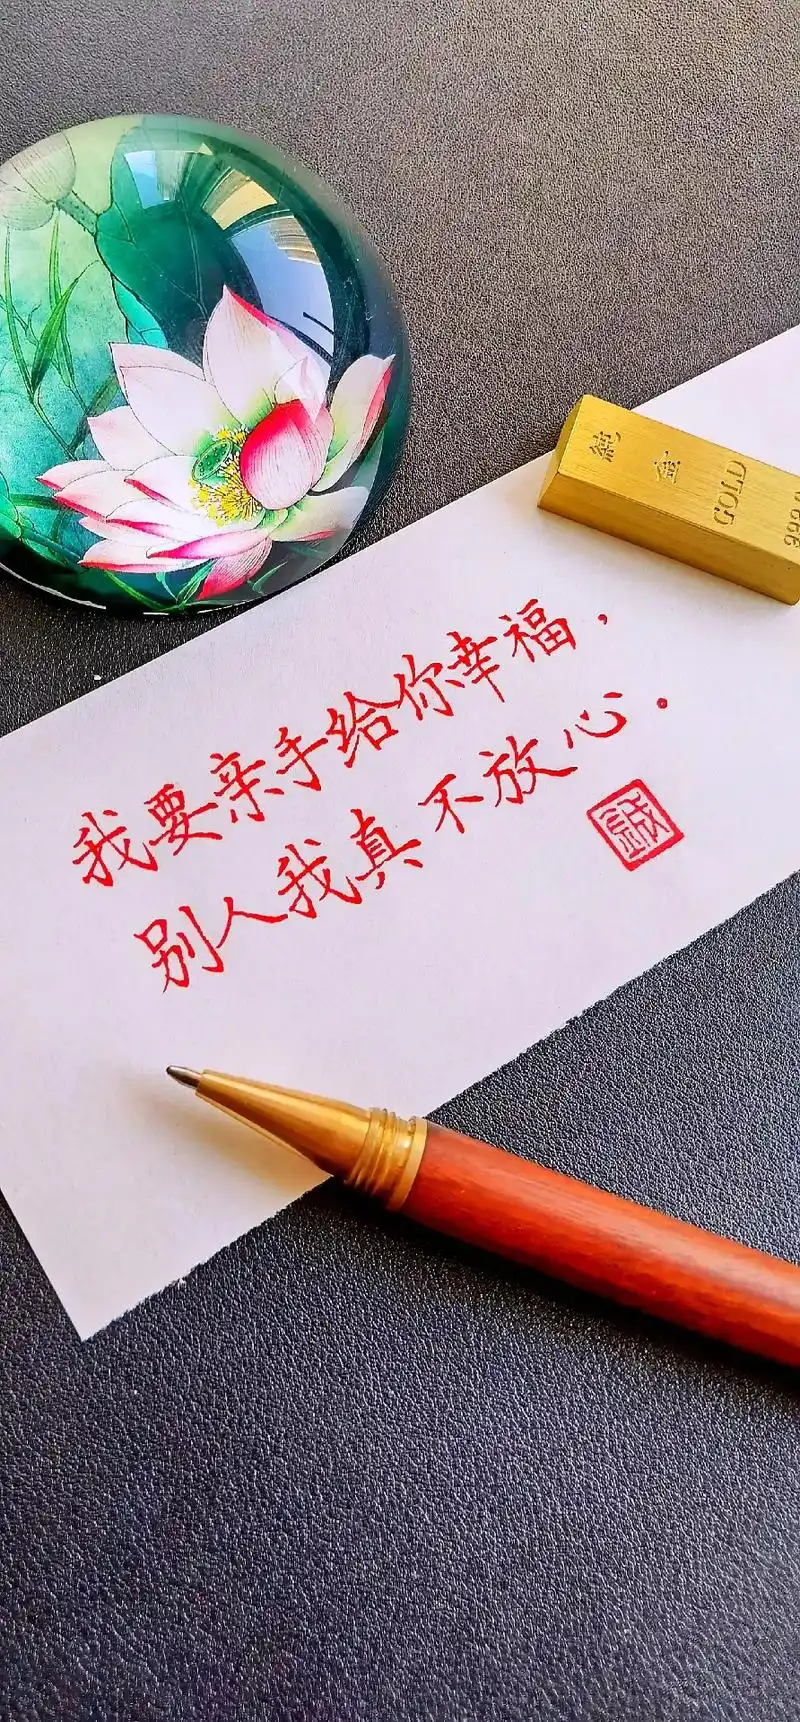 純金 GOLD 999.9
我要亲手给你幸福，
别人我真不放心。
誠